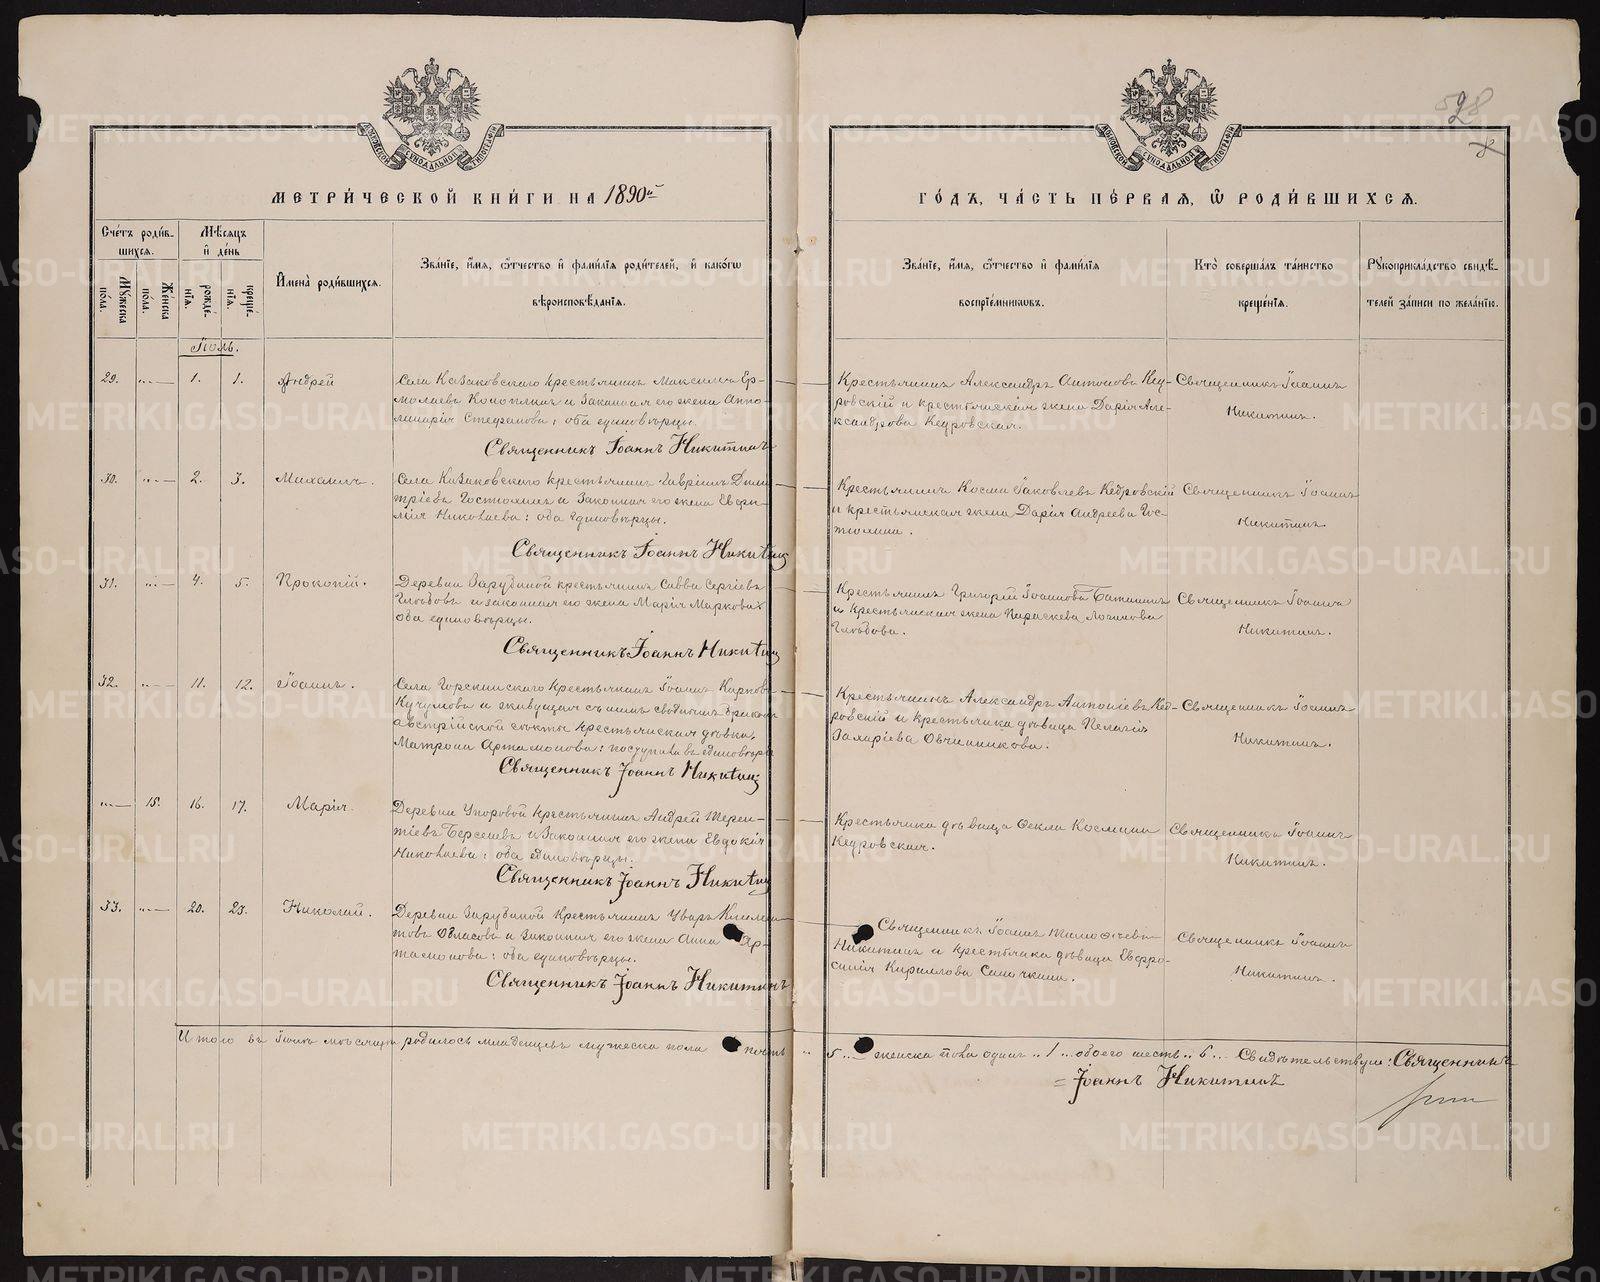 МОСКОВСКОЙ СѴНОДАЛЬНОЙ ТИПОГРАФІИ
МОСКОВСКОЙ СѴНОДАЛЬНОЙ ТИПОГРАФІИ
528
МЕТРИ́ЧЕСКОЙ КНИ́ГИ НА 1890й
ГО́ДЪ, ЧА́СТЬ ПЕ́РВАЯ, Ѡ РОДИ́ВШИХСЯ.
Сче́тъ роди́вшихся.
Му́жеска пола.
Же́нска пола.
Мѣ́сяцъ и де́нь
рожде́нїя.
креще́нїя.
Имена̀ роди́вшихся.
Зва́нїе, и́мя, ѻ́тчество и фами́лїя роди́телей, и како́гѡ
вѣроисповѣ́данїя.
Зва́нїе, и́мя, ѻ́тчество и фами́лїя
воспрїе́мниковъ.
Кто̀ соверша́лъ та́инство
креще́нїя.
Рꙋкоприкла́дство свидѣ́-
телей за́писи по жела́нїю.
Іюль.
29. „ — 1. 1. Андрей
Села Казаковскаго крестьянинъ Максимъ Ер-
молаевъ Коноплинъ и законная его жена Аппо-
линарія Стефанова; оба единовѣрцы.
Священникъ Іоаннъ Никитинъ
Крестьянинъ Александръ Антоновъ Кед-
ровскій и крестьянская жена Дарія Але-
ксандрова Кедровская.
Священникъ Іоаннъ
Никитинъ.
30. „ — 2. 3. Михаилъ.
Села Казаковскаго крестьянинъ Гавріилъ Дими
тріевъ Гостюхинъ и законная его жена Евфи-
мія Николаева; оба единовѣрцы.
Священникъ Іоаннъ Никитинъ
Крестьянинъ Косма Іаковлевъ Кедровскій
и крестьянская жена Дарія Андреева Гос-
тюхина.
Священникъ Іоаннъ
Никитинъ
31. „ — 4. 5. Прокопій.
Деревни Зарубиной крестьянинъ Савва Сергіевъ
Глѣбовъ и законная его жена Марія Маркова:
оба единовѣрцы.
Священникъ Іоаннъ Никитинъ
Крестьянинъ Григорій Іоанновъ
и крестьянская жена Параскева Логинова
Глѣбова.
Священникъ Іоаннъ
Никитинъ.
32. „ — 11. 12. Іоаннъ.
Села крестьянинъ Іоаннъ Карповъ
Кучумовъ и живущая съ нимъ
австрійской секты крестьянская дѣвка,
Матрона Артамонова: поступила въ единовѣріе
Священникъ Іоаннъ Никитинъ
Крестьянинъ Александръ Антоніевъ Кед-
ровскій и крестьянка дѣвица Пелагія
Захаріева Овчинникова.
Священникъ Іоаннъ
Никитинъ.
„ — 15. 16. 17. Марія.
Деревни Упоровой крестьянинъ Андрей Терен-
тіевъ Берсеневъ и законная его жена Евдокія
Николаева: оба единовѣрцы.
Священникъ Іоаннъ Никитинъ
Крестьянка дѣвица Ѳекла Космина
Кедровская.
Священникъ Іоаннъ
Никитинъ.
33. „ — 20. 23. Николай.
Деревни Зарубиной крестьянинъ Уваръ Климен-
товъ Власовъ и законная его жена Анна Ар-
тамонова: оба единовѣрцы.
Священникъ Іоаннъ Никитинъ
Священникъ Іоаннъ Тимоѳеевъ
Никитинъ и крестьянка дѣвица Евфро-
синія Кириллова
Священникъ Іоаннъ
Никитинъ.
Итого въ Іюлѣ мѣсяцѣ родилось младенцевъ мужеска пола пять „ 5 „ женска пола одинъ „ 1 „ обоего шесть „ 6 „ Свидѣтельствую: Священникъ
= Іоаннъ Никитинъ
METRIKI.GASO-URAL.RU